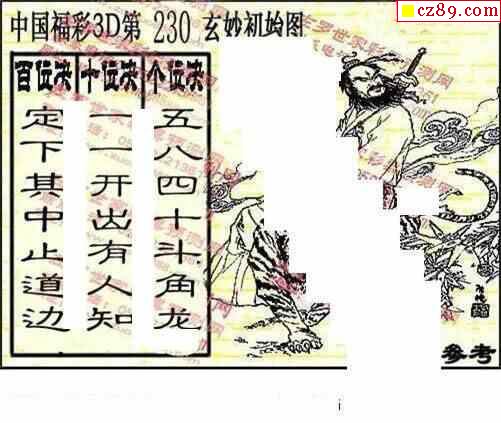 cz89.com
中国福彩3D第 230 玄妙初始图
百位决 十位决 个位决
定下其中止道边
一一开出有人知
五八四十斗角龙
参考